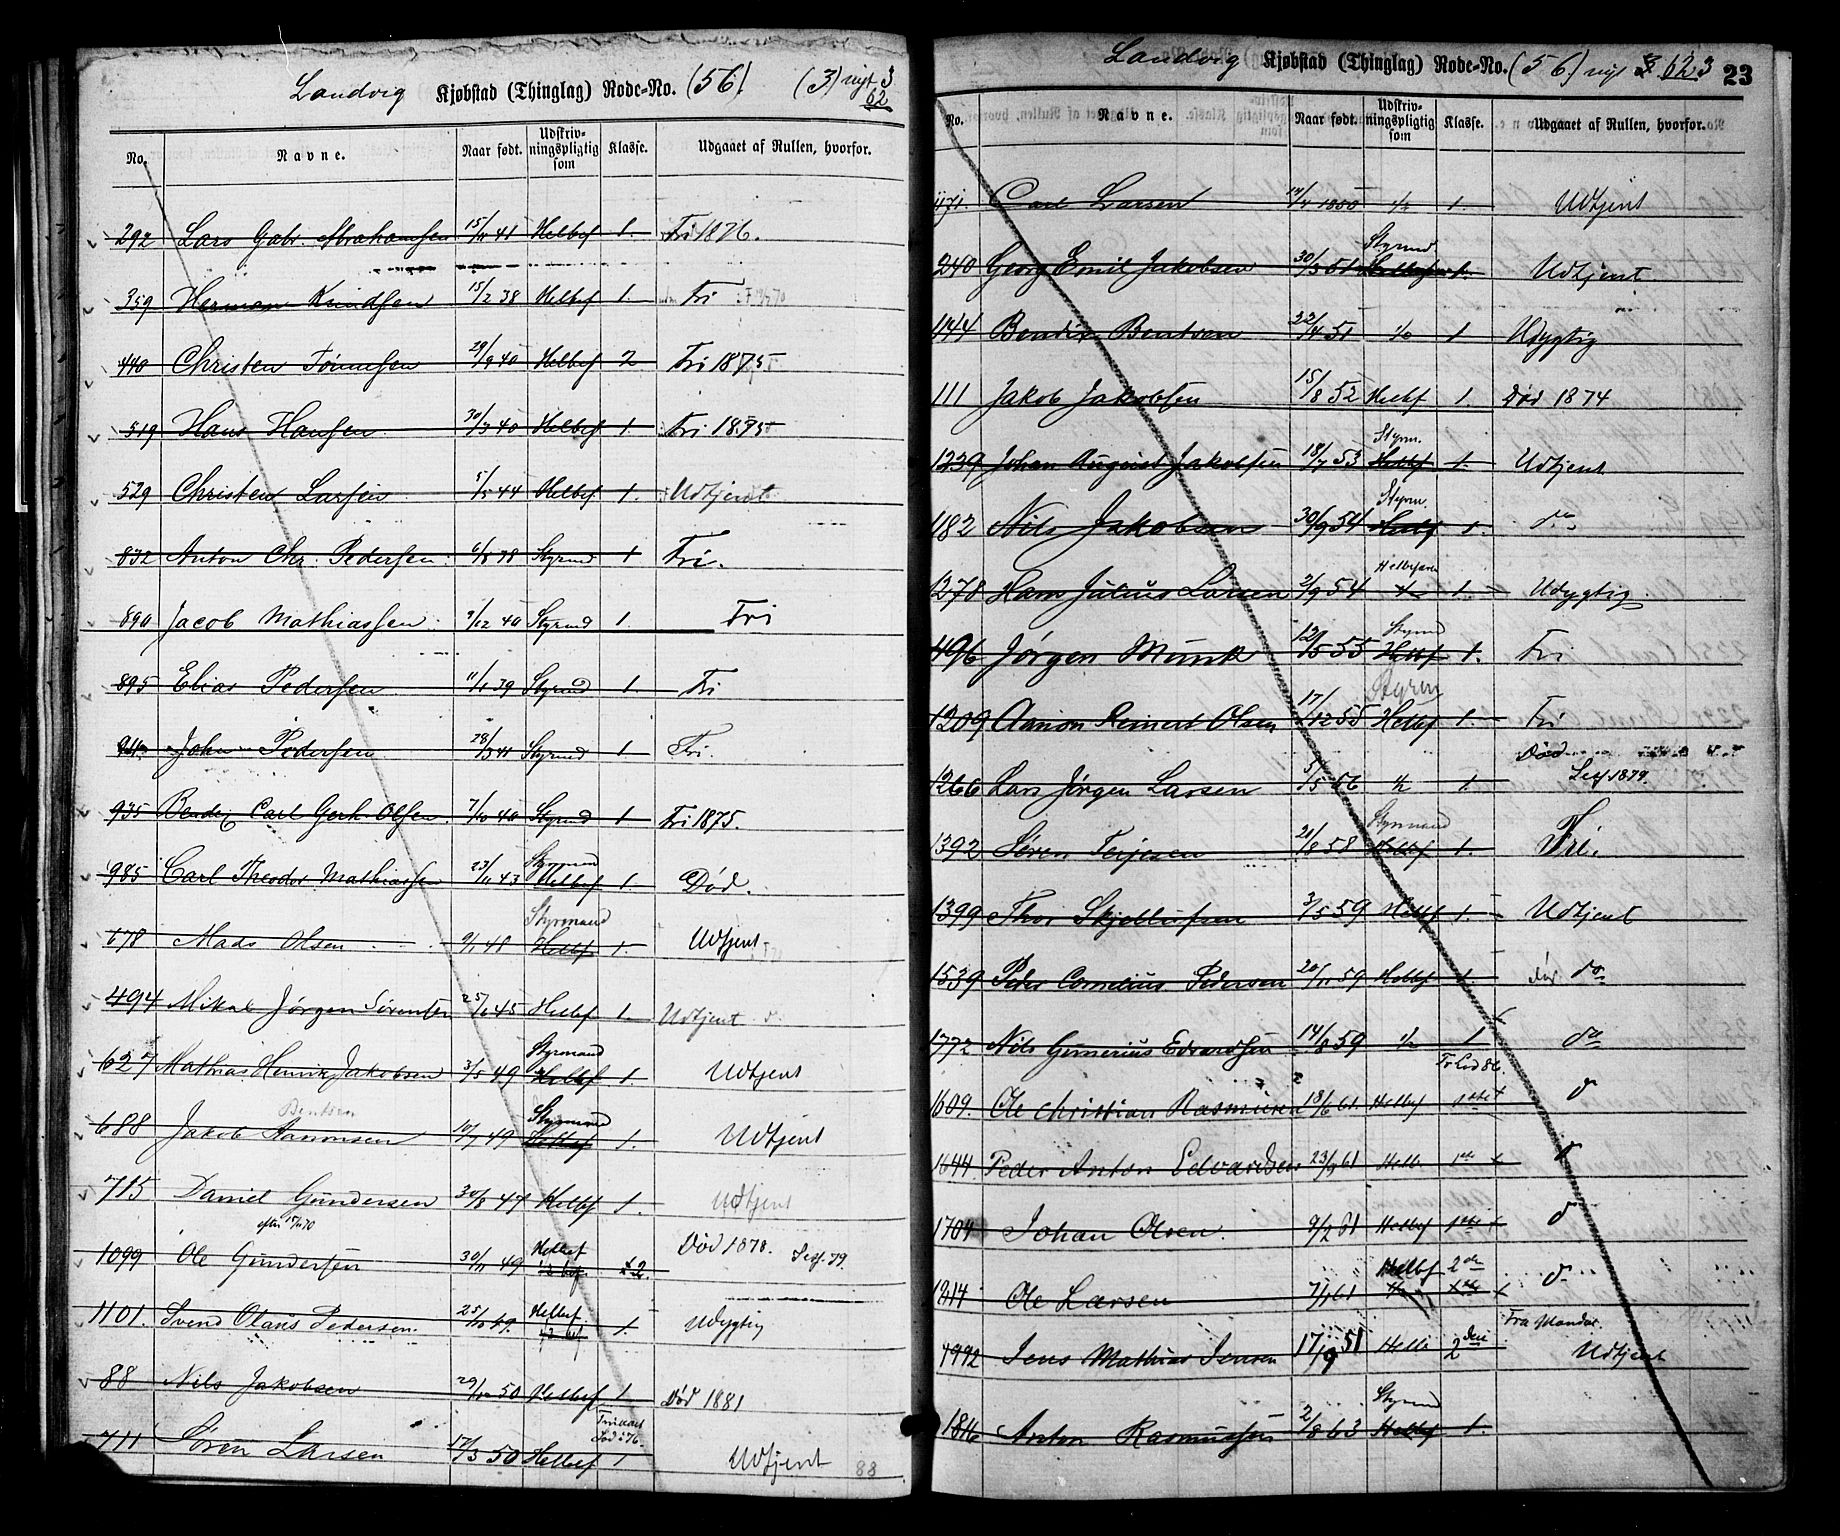 Landvig Kjøbstad (Thinglag) Rode-No. (56) (3) nyt 3
62
No. Navne. Naar født. Udskriv-ningspligtig som Klasse. Udgaaet af Rullen, hvorfor.
292 Lars Gabr. Abrahamsen 41 Helbef 1. Fri 1876.
359 Herman Knudsen 15/2 38 Helbef 1. Fri
440 Christen Tønnesen 29/9 40 Helbef 2 Fri 1875
519 Hans Hansen 30/3 40 Helbef 1. Fri 1875
529 Christen Larsen 5/5 44 Helbef 1. Udtjent
832 Anton Chr. Pedersen 38 Styrmd 1 Fri.
890 Jacob Mathiassen 9/12 40 Styrmd 1 Fri
895 Elias Pedersen 11/1 39 Styrmd 1. Fri
John Pedersen 28/3 41 Styrmd 1 Fri.
935 Bendix Carl Gerh. Olsen 7/10 40 Styrmd 1 Fri 1875.
985 Carl Theodor Mathiassen 23/11 43 Styrmn Helbef 1. Død.
Styrmand
678 Mads Olsen 9/1 48 Helbf 1. Udtjent
494 Mikal Jørgen Sørensen 25/6 45 Helbef 1. Udtjent
Styrmand
627 Mathias Henrik Jakobsen 3/5 49 Helbef 1. Udtjent
Bentsen Styrmand
688 Jakob Aanonsen 10/7 49 Helbef 1. Udtjent
715 Daniel Gundersen 30/8 47 Helbef 1. Udtjent
1099 Ole Gundersen 30/11 49 Helbef 2. Død 1878. Sess. 79.
1101. Svend Olaus Pedersen. 25/10 49. Helbef 1. Udygtig
88 Nils Jakobsen 29/10 50 Helbef 1 Død 1881
711 Søren Larsen 17/3 50 Helbef 1 Udtjent 88
Landvig Kjøbstad (Thinglag) Rode-No. (56) nyt 62 3 23
No. Navne. Naar født. Udskriv-ningspligtig som Klasse. Udgaaet af Rullen, hvorfor.
471. Carl Larsen 19/4 1850 1/2 1. Udtjent
Styrmd
240 Georg Emil Jakobsen 30/3 51 1. Udtjent
1144 Bendix Bentsen 22/4 51 1 Udygtig
111 Jakob Jakobsen 15/8 52 Helbf 1. Død 1874
Styrm.
1239 Johan August Jakobsen 18/7 53 Helbf 1. Udtjent
Styrm.
1182 Nils Jakobsen 30/9 54 Helbf 1. do
Helbefaren
1278 Hans Julius Larsen 2/9 54 1. Udygtig
Styrmd
496 Jørgen Munk 12/5 55 Helbf 1. Fri
Styrm
1209 Aanon Reinert Olsen 17/12 55 Helbf 1. Fri
Død
1266 Lars Jørgen Larsen 5/5 56 1/2 1. Sess 1879.
Styrmand
1392 Søren Terjesen 21/8 58 Helbf 1. Fri.
1399 Thor Skjellufsen 3/5 59 Helbf 1. Udtjent
1539 Peder Cornelius Pedersen 20/11 59 Helbf 1. do
1772 Nils Gumerius Edvardsen 14/8 59 1/2 1 do
1609. Ole Christian Rasmusen 18/6 61 Helbf 1ste d
1644 Peder Anton Edvardsen 23/9 61 Helb 1ste d
1704 Johan Olsen. 9/2 61 Helbef 1ste d
Helbf 2de
1214 Ole Larsen 7/1 61 d
Fra Mandal.
1992 Jens Mathias Jensen 17/9 51 Helb 2den Udtjent
Styrmd
1816 Anton Rasmussen 2/8 63 Helbf 1.